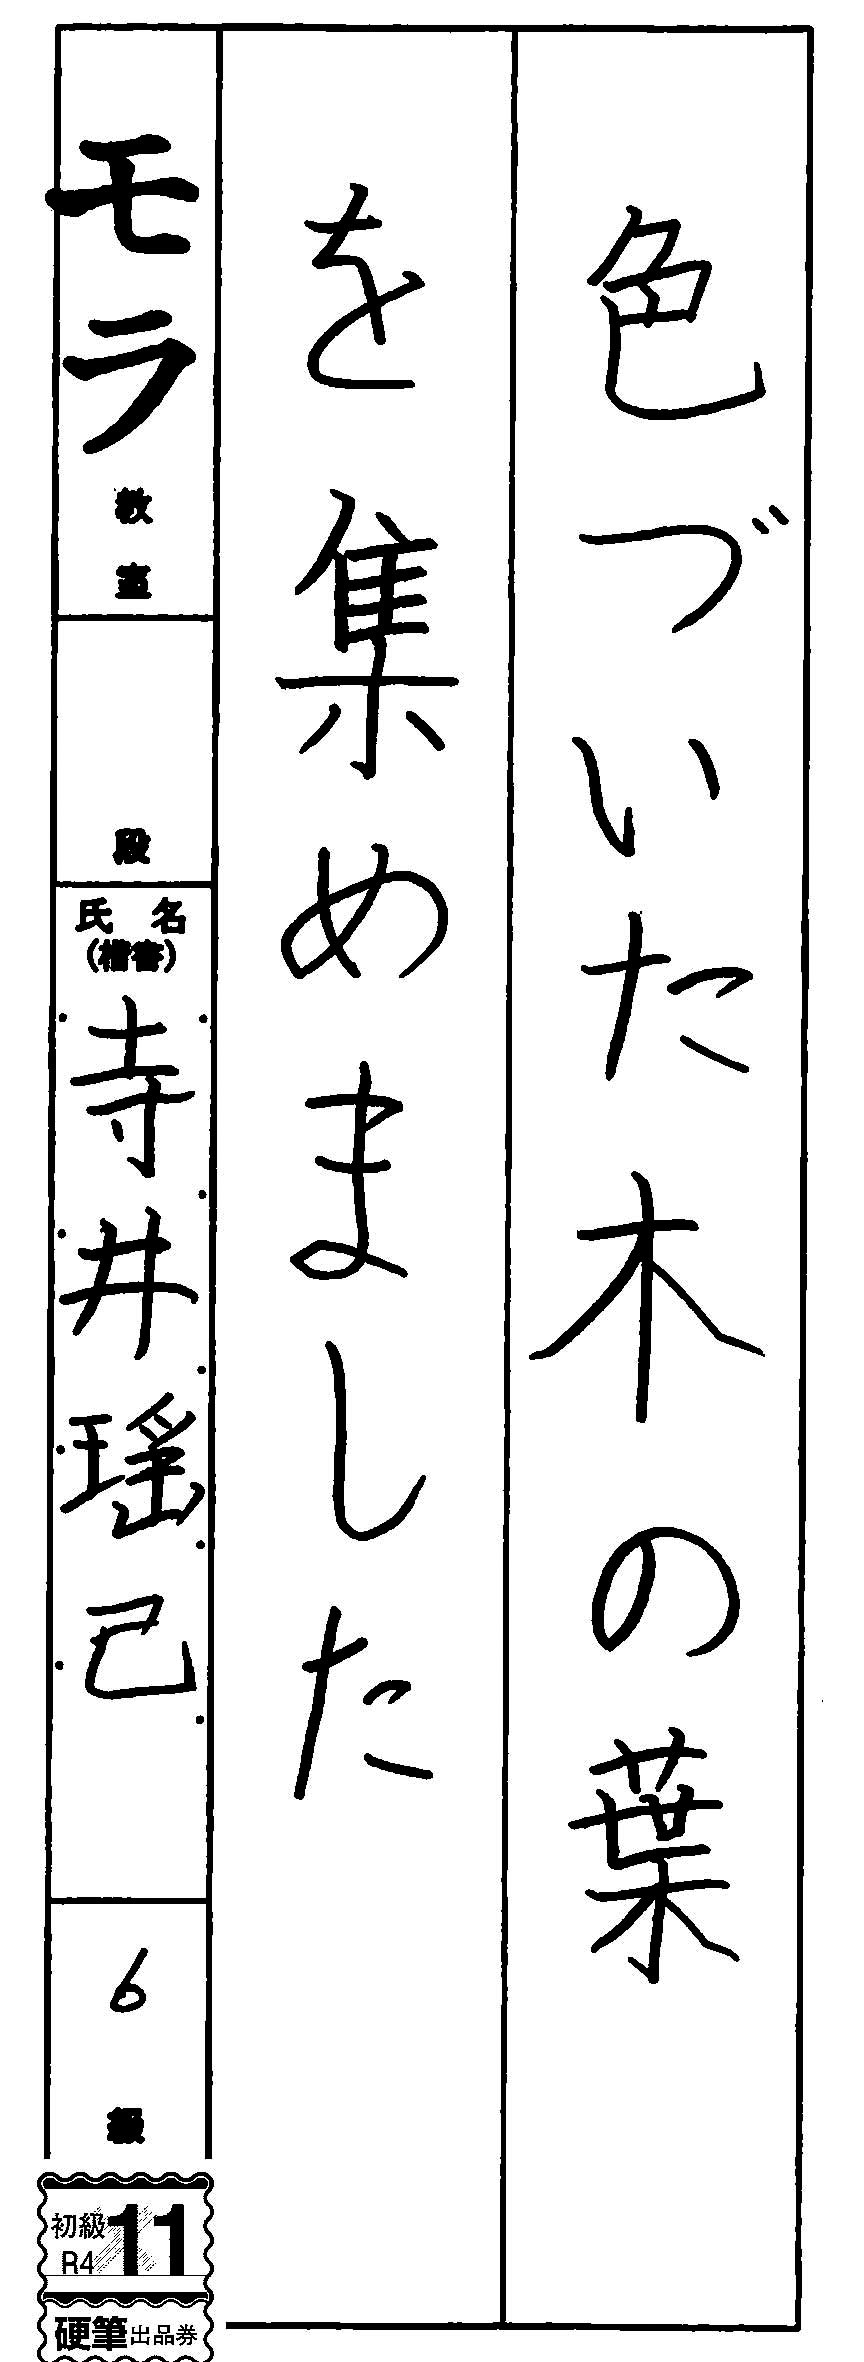 色づいた木の葉
を集めました
モラ教室
段
氏名
(楷書)
寺井瑶己
6級
初級11
R4
硬筆出品券